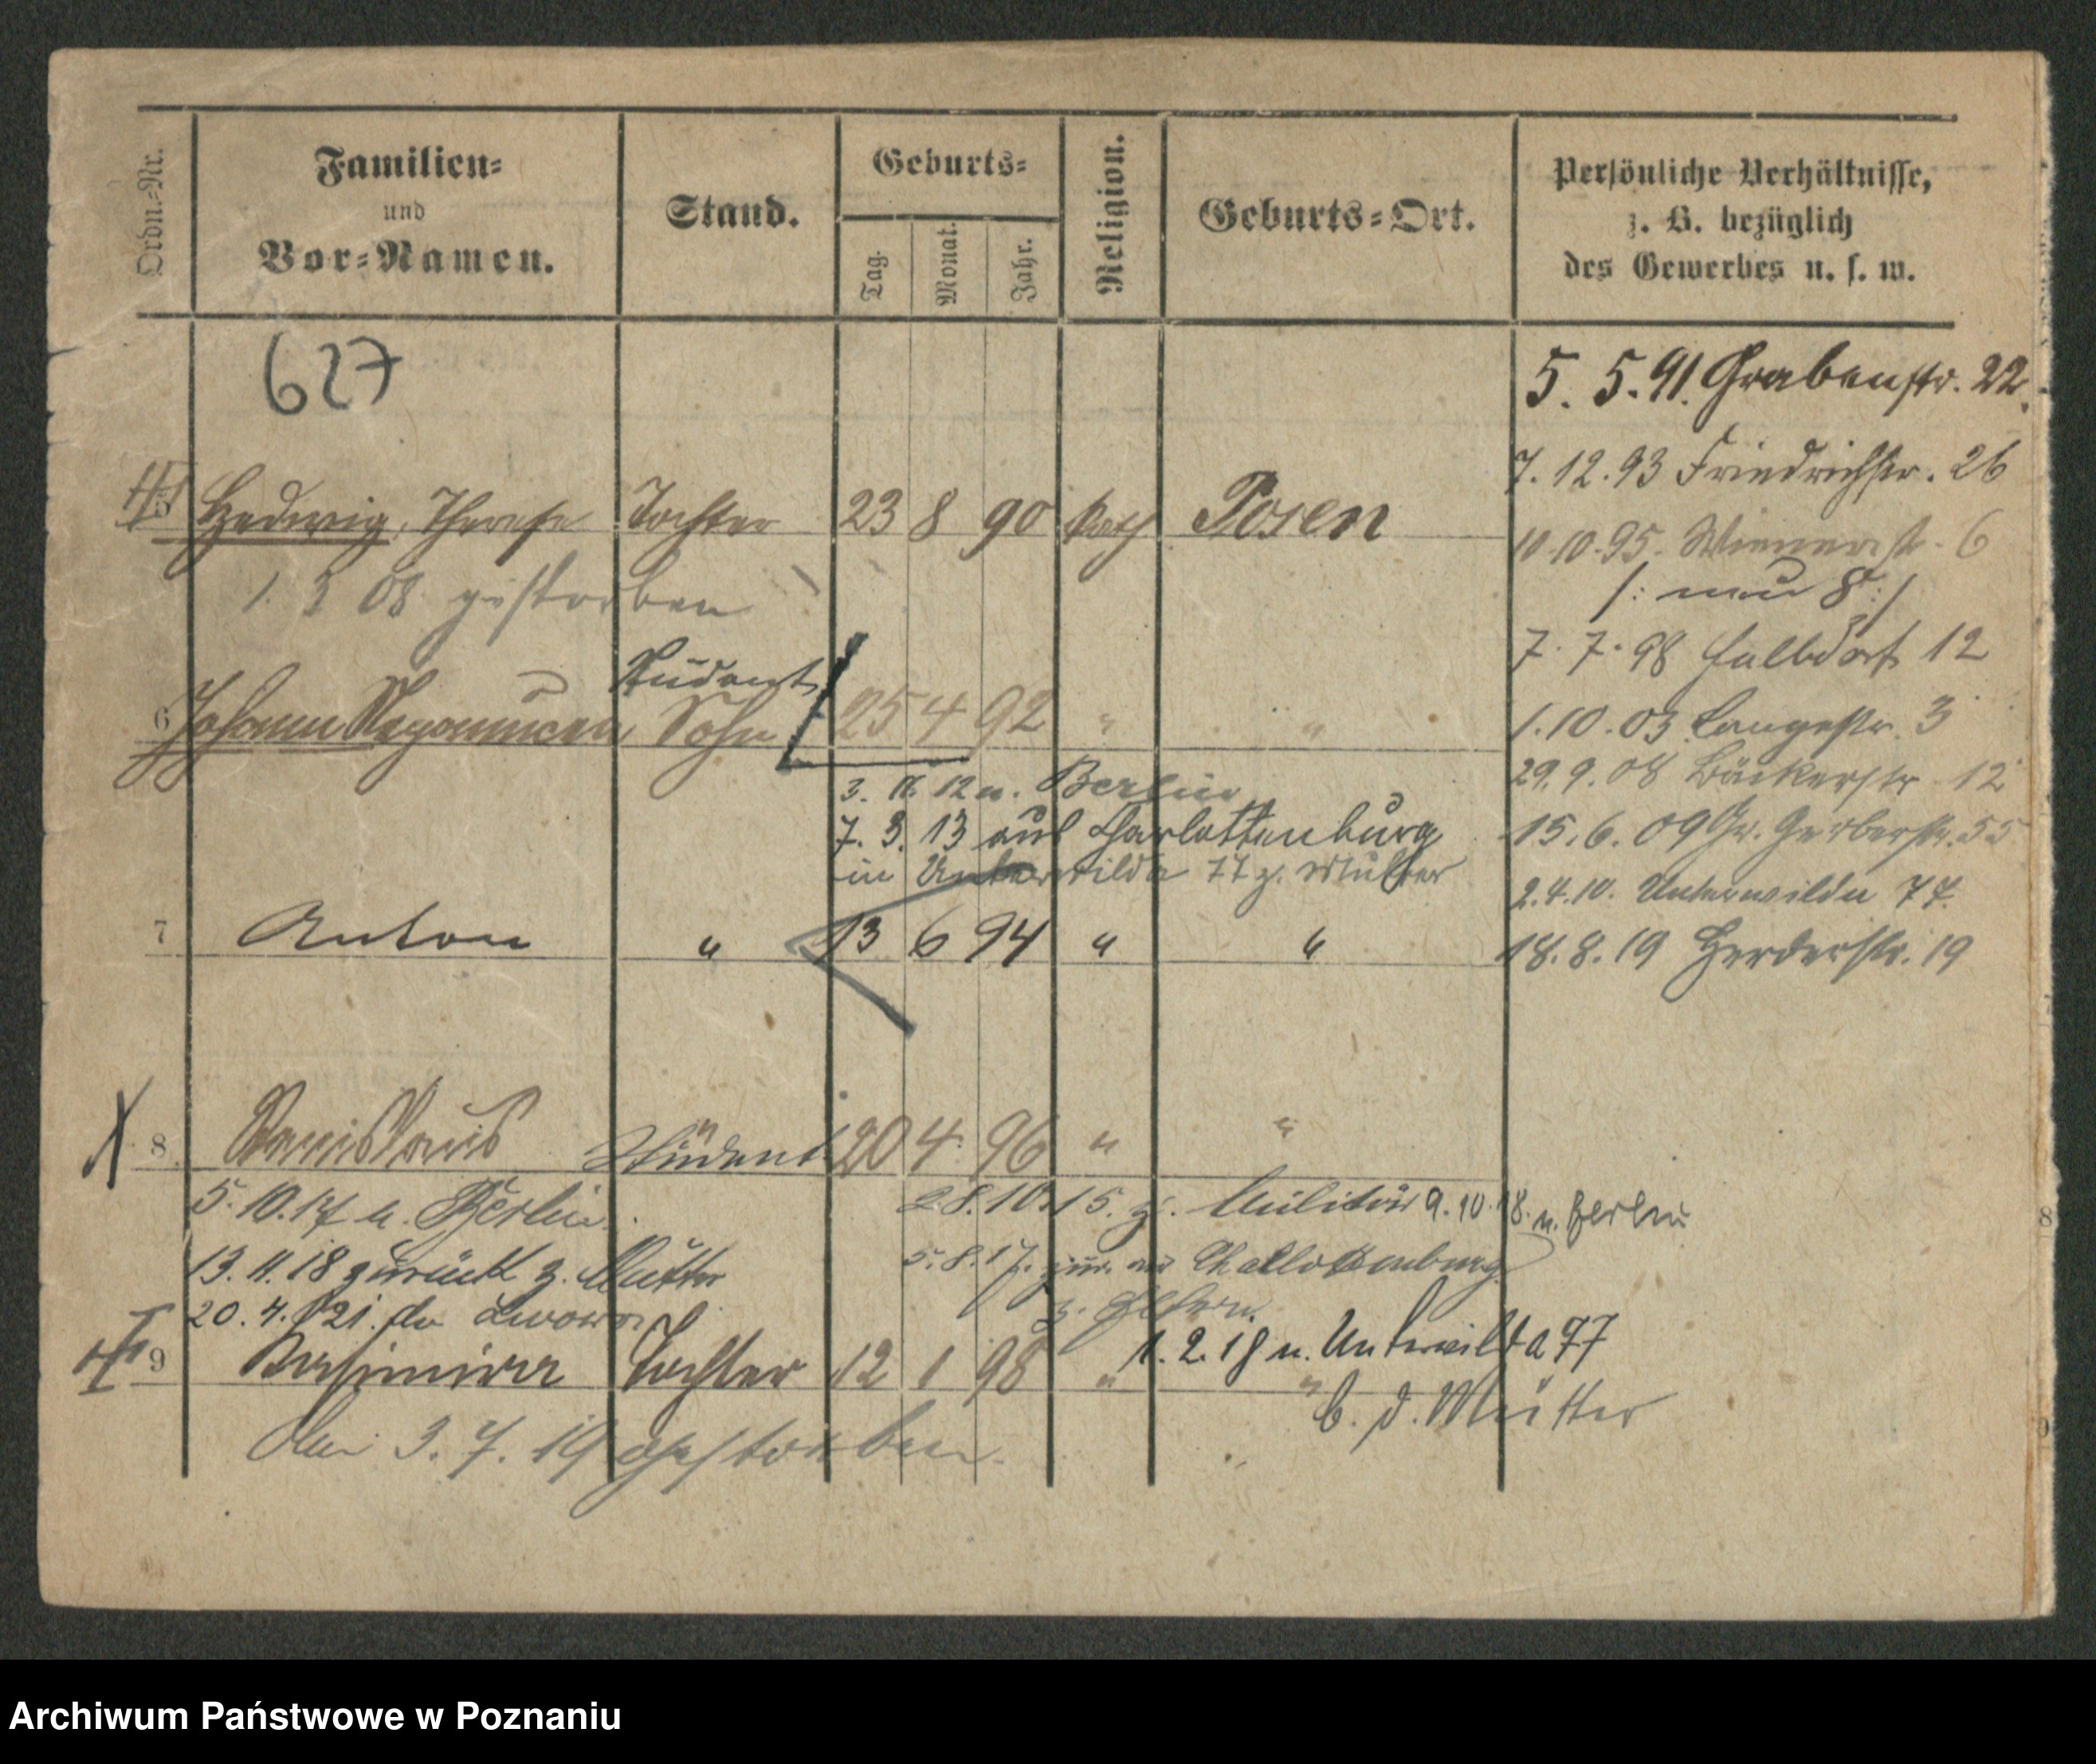 Ordn.-Nr.
Familien-
und
Vor-Namen.
Stand.
Geburts-
Tag.
Monat.
Jahr.
Religion.
Geburts-Ort.
Persönliche Verhältnisse,
z. B. bezüglich
des Gewerbes u. s. w.
627
5. 5. 91. Grabenstr. 22.
7. 12. 93 Friedrichstr. 26
5 Hedwig, Therese Tochter 23 8 90 kath Posen
10. 10. 95. Wienerstr. 6
/: neu 8 :/
1. 08 gestorben
7. 7. 98 Halbdorf 12
Student
6 Johann Nepomucen, Sohn 25 4 92 " "
1. 10. 03 Langestr. 3
29. 9. 08 Bäckerstr. 12
3. 11. 12 n. Berlin
7. 3. 13 aus Charlottenburg
15. 6. 09 Gr. Gerberstr. 55
in Unterwilda 77 z. Mutter
2. 4. 10. Unterwilda 77.
7 Anton " 13 6 94 " "
18. 8. 19 Herderstr. 19
8 Stanislaus Student 20 4. 96 " "
5. 10. 17 n. Berlin.
28. 10. 15. z. Militär 9. 10. 18. n. Berlin
13. 11. 18 zurück z. Mutter
5. 8. 17. zur. aus Charlottenburg
z. Eltern.
20. 4. 21. do Lwowa
1. 2. 18 n. Unterwilda 77
9 Kasimira Tochter 12 1 98 " "
b. d. Mutter
den 3. 7. 19 gestorben.
8
9
Archiwum Państwowe w Poznaniu